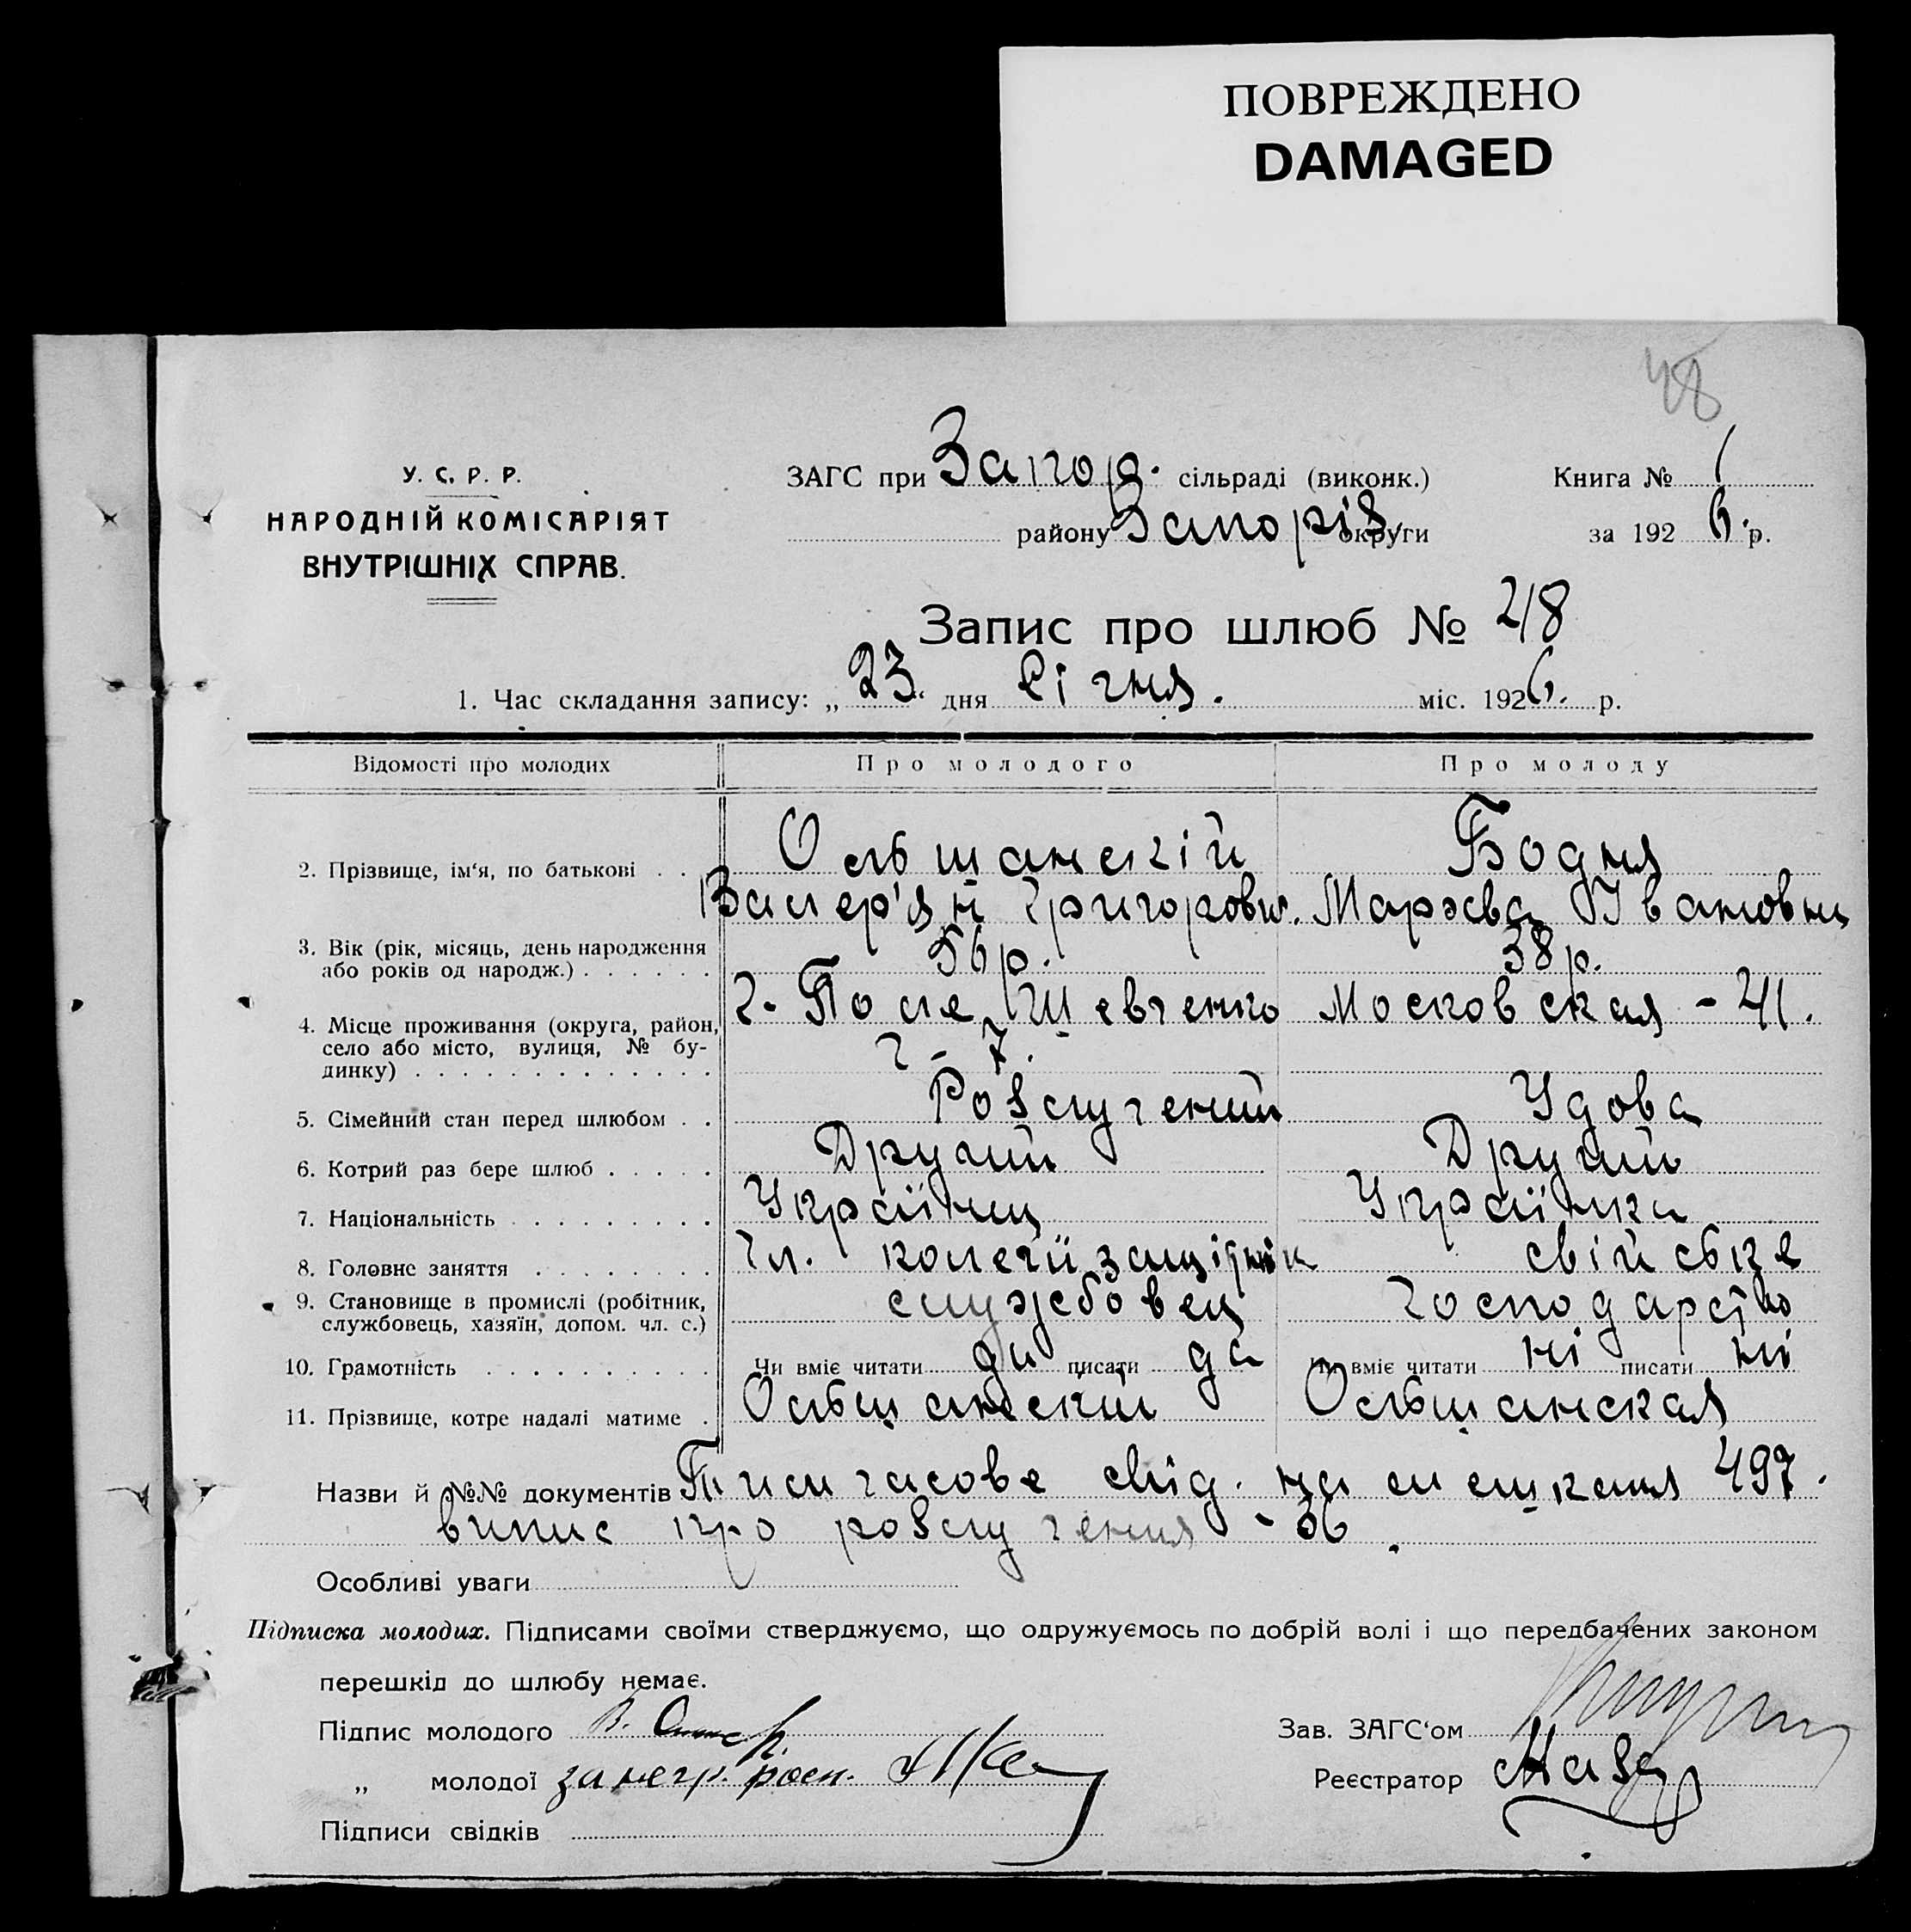 ПОВРЕЖДЕНО
DAMAGED
48
У. С. Р. Р.
НАРОДНІЙ КОМІСАРІЯТ
ВНУТРІШНІХ СПРАВ.
ЗАГС при Запор. сільраді (виконк.)
району Запоріз. округи
Книга № 1
за 1926. р.
Запис про шлюб № 218
1. Час складання запису: „23“ дня Січня. міс. 1926. р.
Відомості про молодих Про молодого Про молоду
2. Прізвище, ім‘я, по батькові . . Ольшанскій Бодня
Валер'ян Григоров. Марэва Івановна
3. Вік (рік, місяць, день народження
або років од народж.) . . . . . . 56 р. 38 р.
4. Місце проживання (округа, район,
село або місто, вулиця, № бу-
динку) . . . . . . . . . . . . . Шевченко Московская - 41.
5. Сімейний стан перед шлюбом . . Розлучений Удова
6. Котрий раз бере шлюб . . . . . Другий Другий
7. Національність . . . . . . . . . Українец Українка
8. Головне заняття . . . . . . . . Чл. колегії защітнік свійське
9. Становище в промислі (робітник,
службовець, хазяїн, допом. чл. с.) службовец господарство
10. Грамотність . . . . . . . . . Чи вміє читати да писати да Чи вміє читати ні писати ні
11. Прізвище, котре надалі матиме . Ольшанский Ольшанская
Назви й №№ документів Тимчасове свід. на мешкання 497.
випис про розлучення - 36.
Особливі уваги
Підписка молодих. Підписами своїми стверджуємо, що одружуємось по добрій волі і що передбачених законом
перешкід до шлюбу немає.
Підпис молодого
„ молодої за негр. росп.
Підписи свідків
Зав. ЗАГС‘ом
Реєстратор